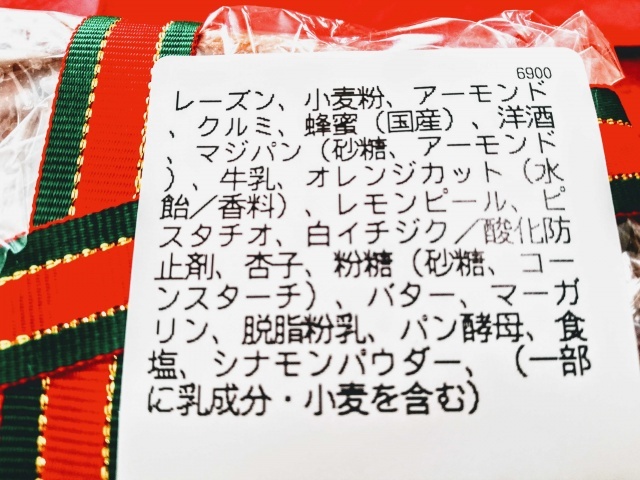 6900
レーズン、小麦粉、アーモンド
、クルミ、蜂蜜（国産）、洋酒
、マジパン（砂糖、アーモンド
）、牛乳、オレンジカット（水
飴／香料）、レモンピール、ピ
スタチオ、白イチジク／酸化防
止剤、杏子、粉糖（砂糖、コー
ンスターチ）、バター、マーガ
リン、脱脂粉乳、パン酵母、食
塩、シナモンパウダー、（一部
に乳成分・小麦を含む）